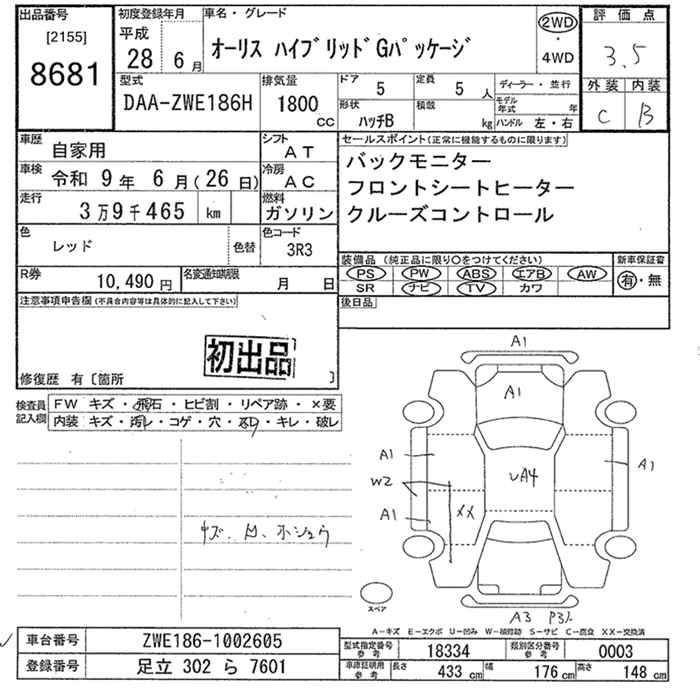 出品番号
[2155]
8681
初度登録年月
平成
28 6月
車名・グレード
オーリス ハイブリッドGパッケージ
2WD
・
4WD
評価点
3.5
外装 内装
C B
型式
DAA-ZWE186H
排気量
1800 cc
ドア
5
定員
5 人
ディーラー・並行
形状
ハッチB
積載
kg
モデル年式 年
ハンドル 左・右
車歴
自家用
シフト
AT
車検
令和 9年 6月(26日)
冷房
AC
走行
3万9千465 km
燃料
ガソリン
色
レッド
色替
色コード
3R3
R券
10,490円
名変通知期限
月 日
セールスポイント(正常に機能するものに限ります)
バックモニター
フロントシートヒーター
クルーズコントロール
装備品(純正品に限り○をつけてください)
PS PW ABS エアB AW
SR ナビ TV カワ
新車保証書
有・無
後日品
注意事項申告欄(不具合内容等は具体的に記入して下さい)
初出品
修復歴 有〔箇所 〕
検査員記入欄
FW キズ・飛石・ヒビ割・リペア跡・×要
内装 キズ・汚レ・コゲ・穴・スレ・キレ・破レ
キズ、凹、ホシュウ
A1
A1
A1
A1
W2
UA4
A1
XX
A3 P3
スペア
A-キズ E-エクボ U-凹み W-補修跡 S-サビ C-腐食 XX-交換済
車台番号
ZWE186-1002605
登録番号
足立 302 ら 7601
型式指定番号
参考
18334
類別区分番号
参考
0003
車庫証明用
参考
長さ 433 cm 幅 176 cm 高さ 148 cm